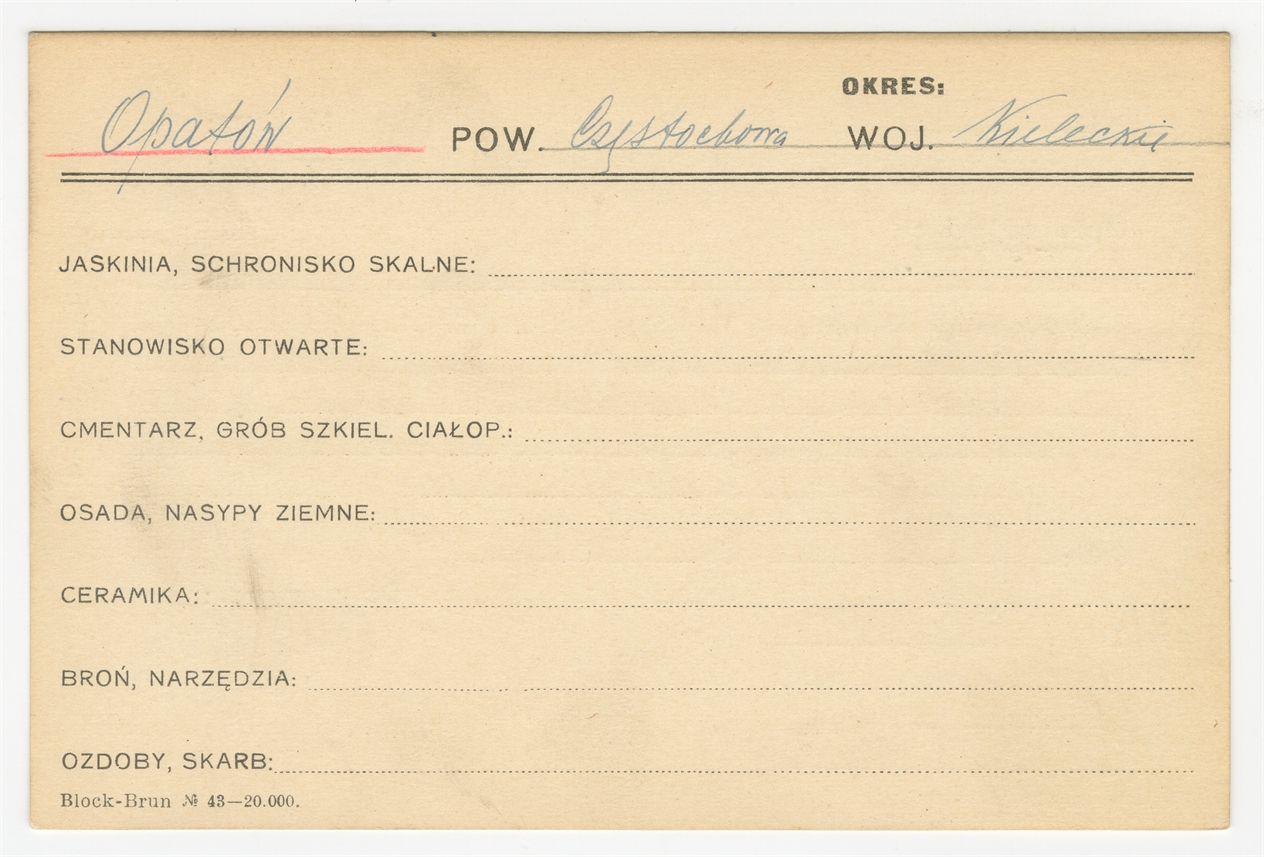 OKRES:
Opatów POW. Częstochowa WOJ. Kieleckie
JASKINIA, SCHRONISKO SKALNE:
STANOWISKO OTWARTE:
CMENTARZ, GRÓB SZKIEL. CIAŁOP.:
OSADA, NASYPY ZIEMNE:
CERAMIKA:
BROŃ, NARZĘDZIA:
OZDOBY, SKARB:
Block-Brun № 43—20.000.